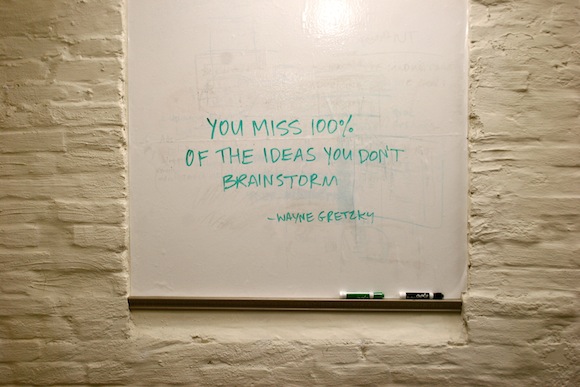 YOU MISS 100%
OF THE IDEAS YOU DON'T
BRAINSTORM
-WAYNE GRETZKY